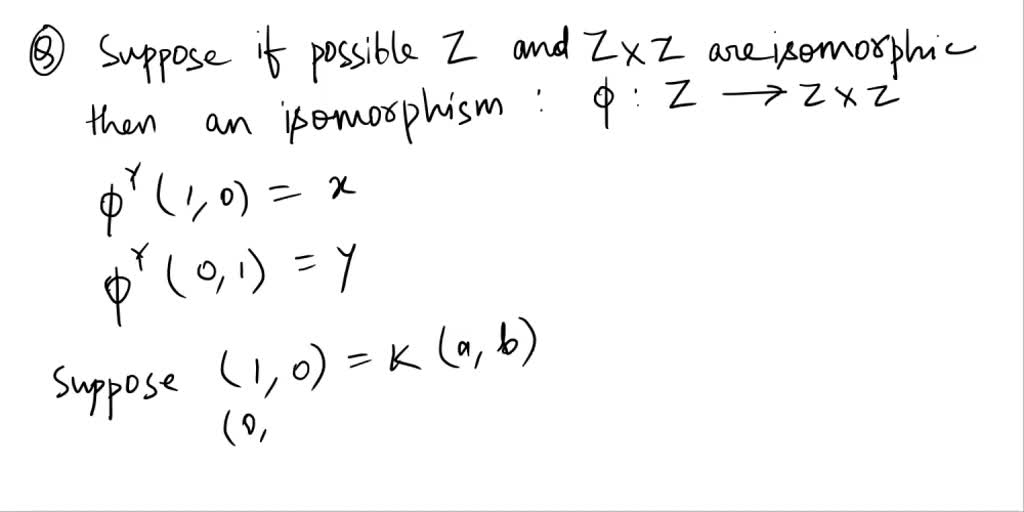 ⑧ Suppose if possible Z and Z×Z are isomorphic
then an isomorphism : ϕ : Z → Z×Z
ϕ^γ (1,0) = x
ϕ^γ (0,1) = y
Suppose (1,0) = K (a,b)
(0,